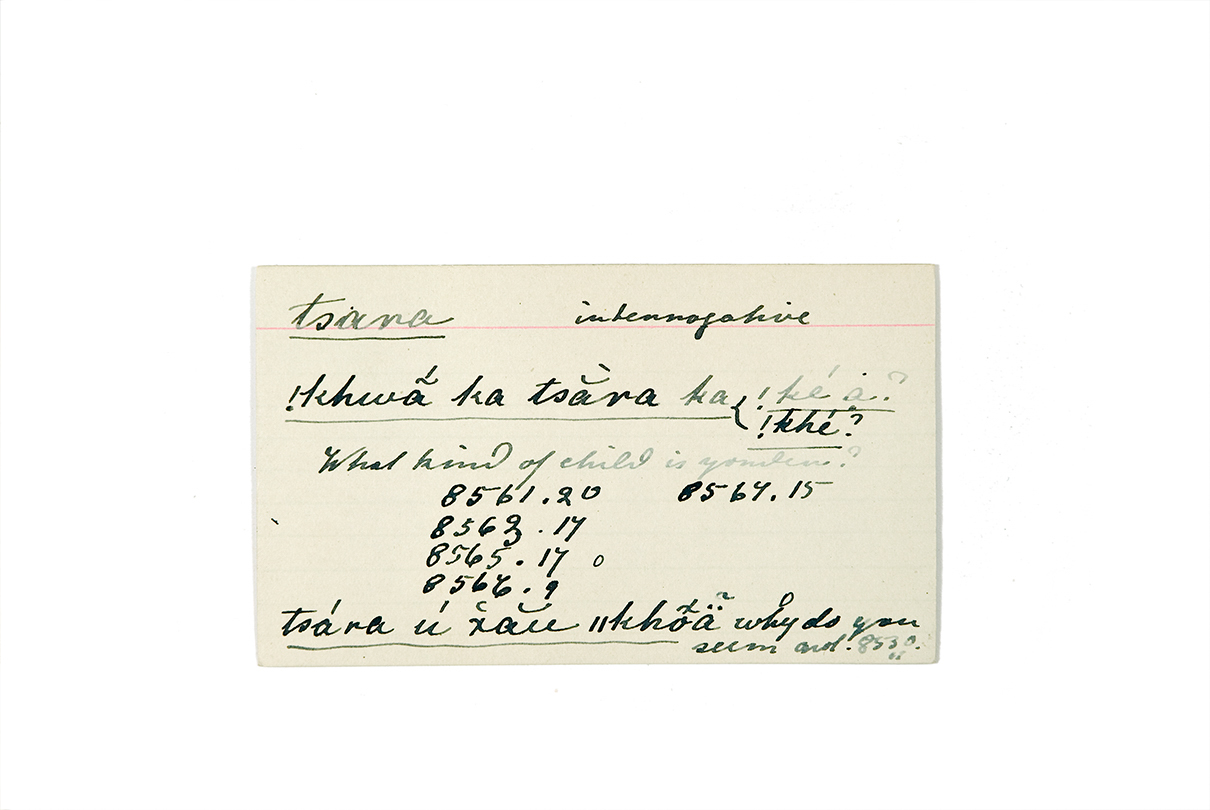 tsara interrogative
!khwẵ ka tsằra ka { !ké ȧ.?
!khé?
What kind of child is yonder?
8561.20 8564.15
8563.17
8565.17 0
8566.9
tsára ú ǁkhõä why do you
seem 8530.